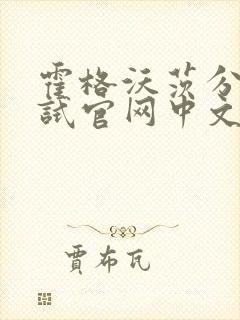 霍格沃茨分
试官网中文
贾布瓦